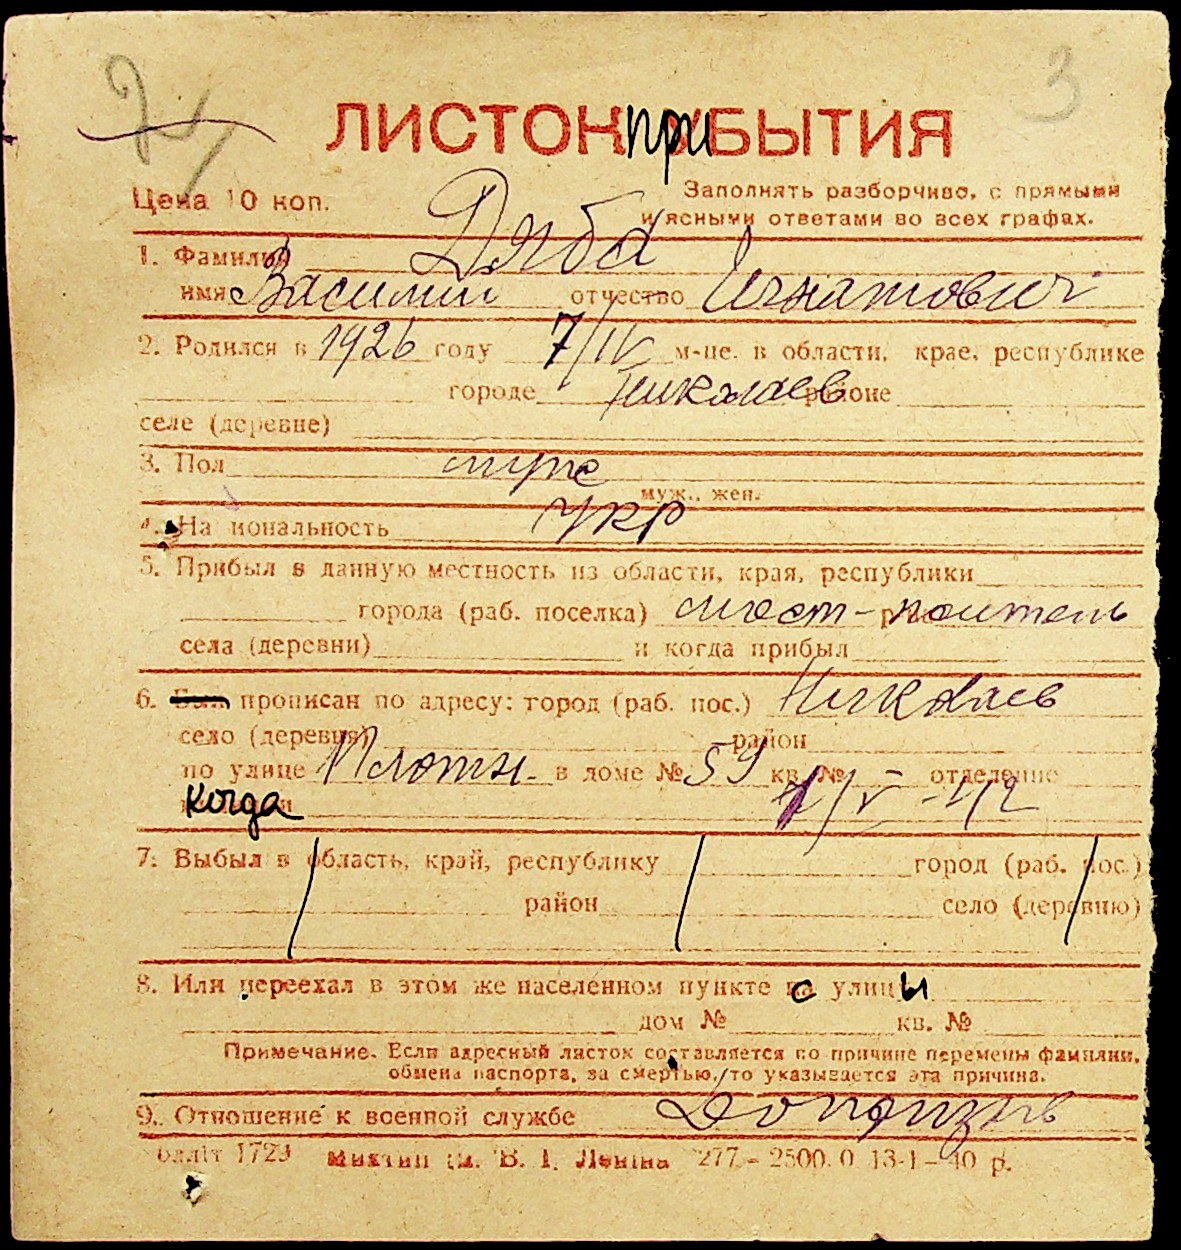 3
ЛИСТОК ПРИБЫТИЯ
Цена 10 коп.
Заполнять разборчиво, с прямыми
и ясными ответами во всех графах.
1. Фамилия Дяба
имя Василий отчество Игнатович
2. Родился в 1926 году 7/IV м-це. в области, крае, республике
городе Николаев районе
селе (деревне)
3. Пол муж
муж., жен.
4. На иональность укр
5. Прибыл в данную местность из области, края, республики
города (раб. поселка) мест-житель
села (деревни) и когда прибыл
6. прописан по адресу: город (раб. пос.) Николаев
село (деревня) район
по улице Плотн. в доме № 59 кв. № отделение
когда
7. Выбыл в область, край, республику город (раб. пос.)
район село (деревню)
8. Или переехал в этом же населенном пункте с улицы
дом № кв. №
Примечание. Если адресный листок составляется по причине перемены фамилии,
обмена паспорта, за смертью, то указывается эта причина.
9. Отношение к военной службе Допризыв
1729 им. В. І. Леніна 277 – 2500. 0 13-1 – 40 р.